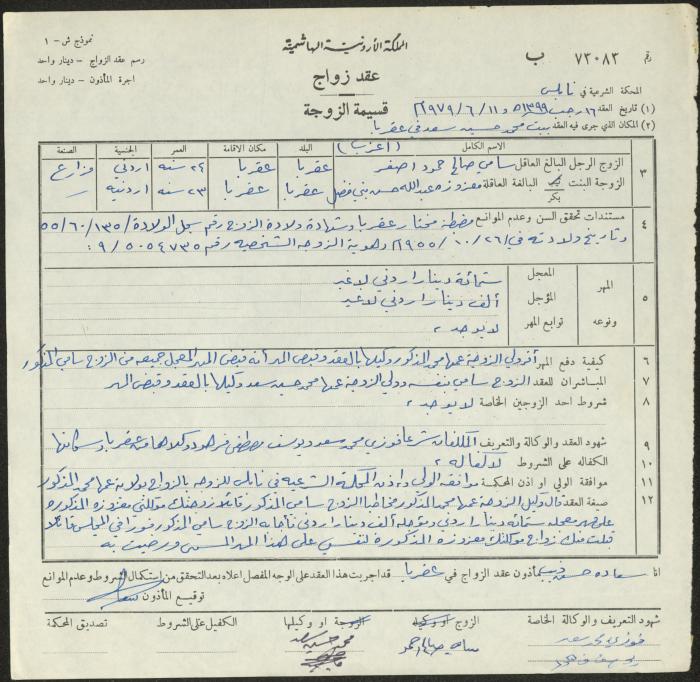 نموذج ش - ١
رسم عقد الزواج - دينار واحد
اجرة المأذون - دينار واحد
المملكة الأردنية الهاشمية
عقد زواج
قسيمة الزوجة
رقم ٧٣٠٨٣ ب
المحكمة الشرعية في نابلس
(١) تاريخ العقد ١٦ رجب ١٣٩٩ هـ و ١١/٦/١٩٧٩
(٢) المكان الذي جرى فيه العقد بيت محمد حسين سعد في عقربا
الاسم الكامل (أعزب) البلد مكان الاقامة العمر الجنسية الصنعة
٣ الزوج الرجل البالغ العاقل سامي صالح حمود اصفر عقربا عقربا ٢٤ سنه اردني مزارع
الزوجة البنت بكر البالغة العاقلة معزوزه عبدالله حسن بني فضل عقربا عقربا ٢٣ سنه اردنيه
٤ مستندات تحقق السن وعدم الموانع مضبطة مختار عقربا وشهادة ولادة الزوج رقم سجل الولادة ١٣٥/٦٠/٥٥
وتاريخ ولادته في ٢٦/١٠/١٩٥٥ وهوية الزوجه الشخصيه رقم ٩/٥٠٥٤٧٣٥
٥ المهر ونوعه
المعجل ستمائة دينار اردني لاغير
المؤجل ألف دينار اردني لاغير
توابع المهر لا يوجد
٦ كيفية دفع المهر أقر ولي الزوجة عمها محمد المذكور وكيلها بالعقد وقبض المهر أنه قبض المهر المعجل جميعه من الزوج سامي المذكور
٧ المباشران للعقد الزوج سامي بنفسه وولي الزوجة عمها محمد حسين سعد وكيلها بالعقد وقبض المهر
٨ شروط احد الزوجين الخاصة لا يوجد
٩ شهود العقد والوكالة والتعريف المكلفان شرعا فوزي محمد سعد ويوسف مصطفى وكلاهما من عقربا وسكانها
١٠ الكفاله على الشروط لا كفاله
١١ موافقة الولي او اذن المحكمة موافقه الولي واذن المحكمة الشرعيه في نابلس للزوجه بالزواج بولاية عمها محمد المذكور
١٢ صيغة العقد قال وكيل الزوجة عمها محمد المذكور مخاطبا الزوج سامي المذكور قائلا زوجتك موكلتي معزوزه المذكوره
على مهر معجله ستمائة دينار اردني ومؤجله ألف دينار اردني فأجابه الزوج سامي المذكور فورا في المجلس قائلا
قبلت منك زواج موكلتك معزوزه المذكورة لنفسي على هذا المهر المسمى ورضيت به
انا سعاده حسن مأذون عقد الزواج في عقربا قد اجريت هذا العقد على الوجه المفصل اعلاه بعد التحقق من استكمال الشروط وعدم الموانع
توقيع المأذون
شهود التعريف والوكالة الخاصة الزوج او وكيله الزوجة او وكيلها الكفيل على الشروط تصديق المحكمة
فوزي محمد سعد سامي صالح حمود محمد حسين سعد